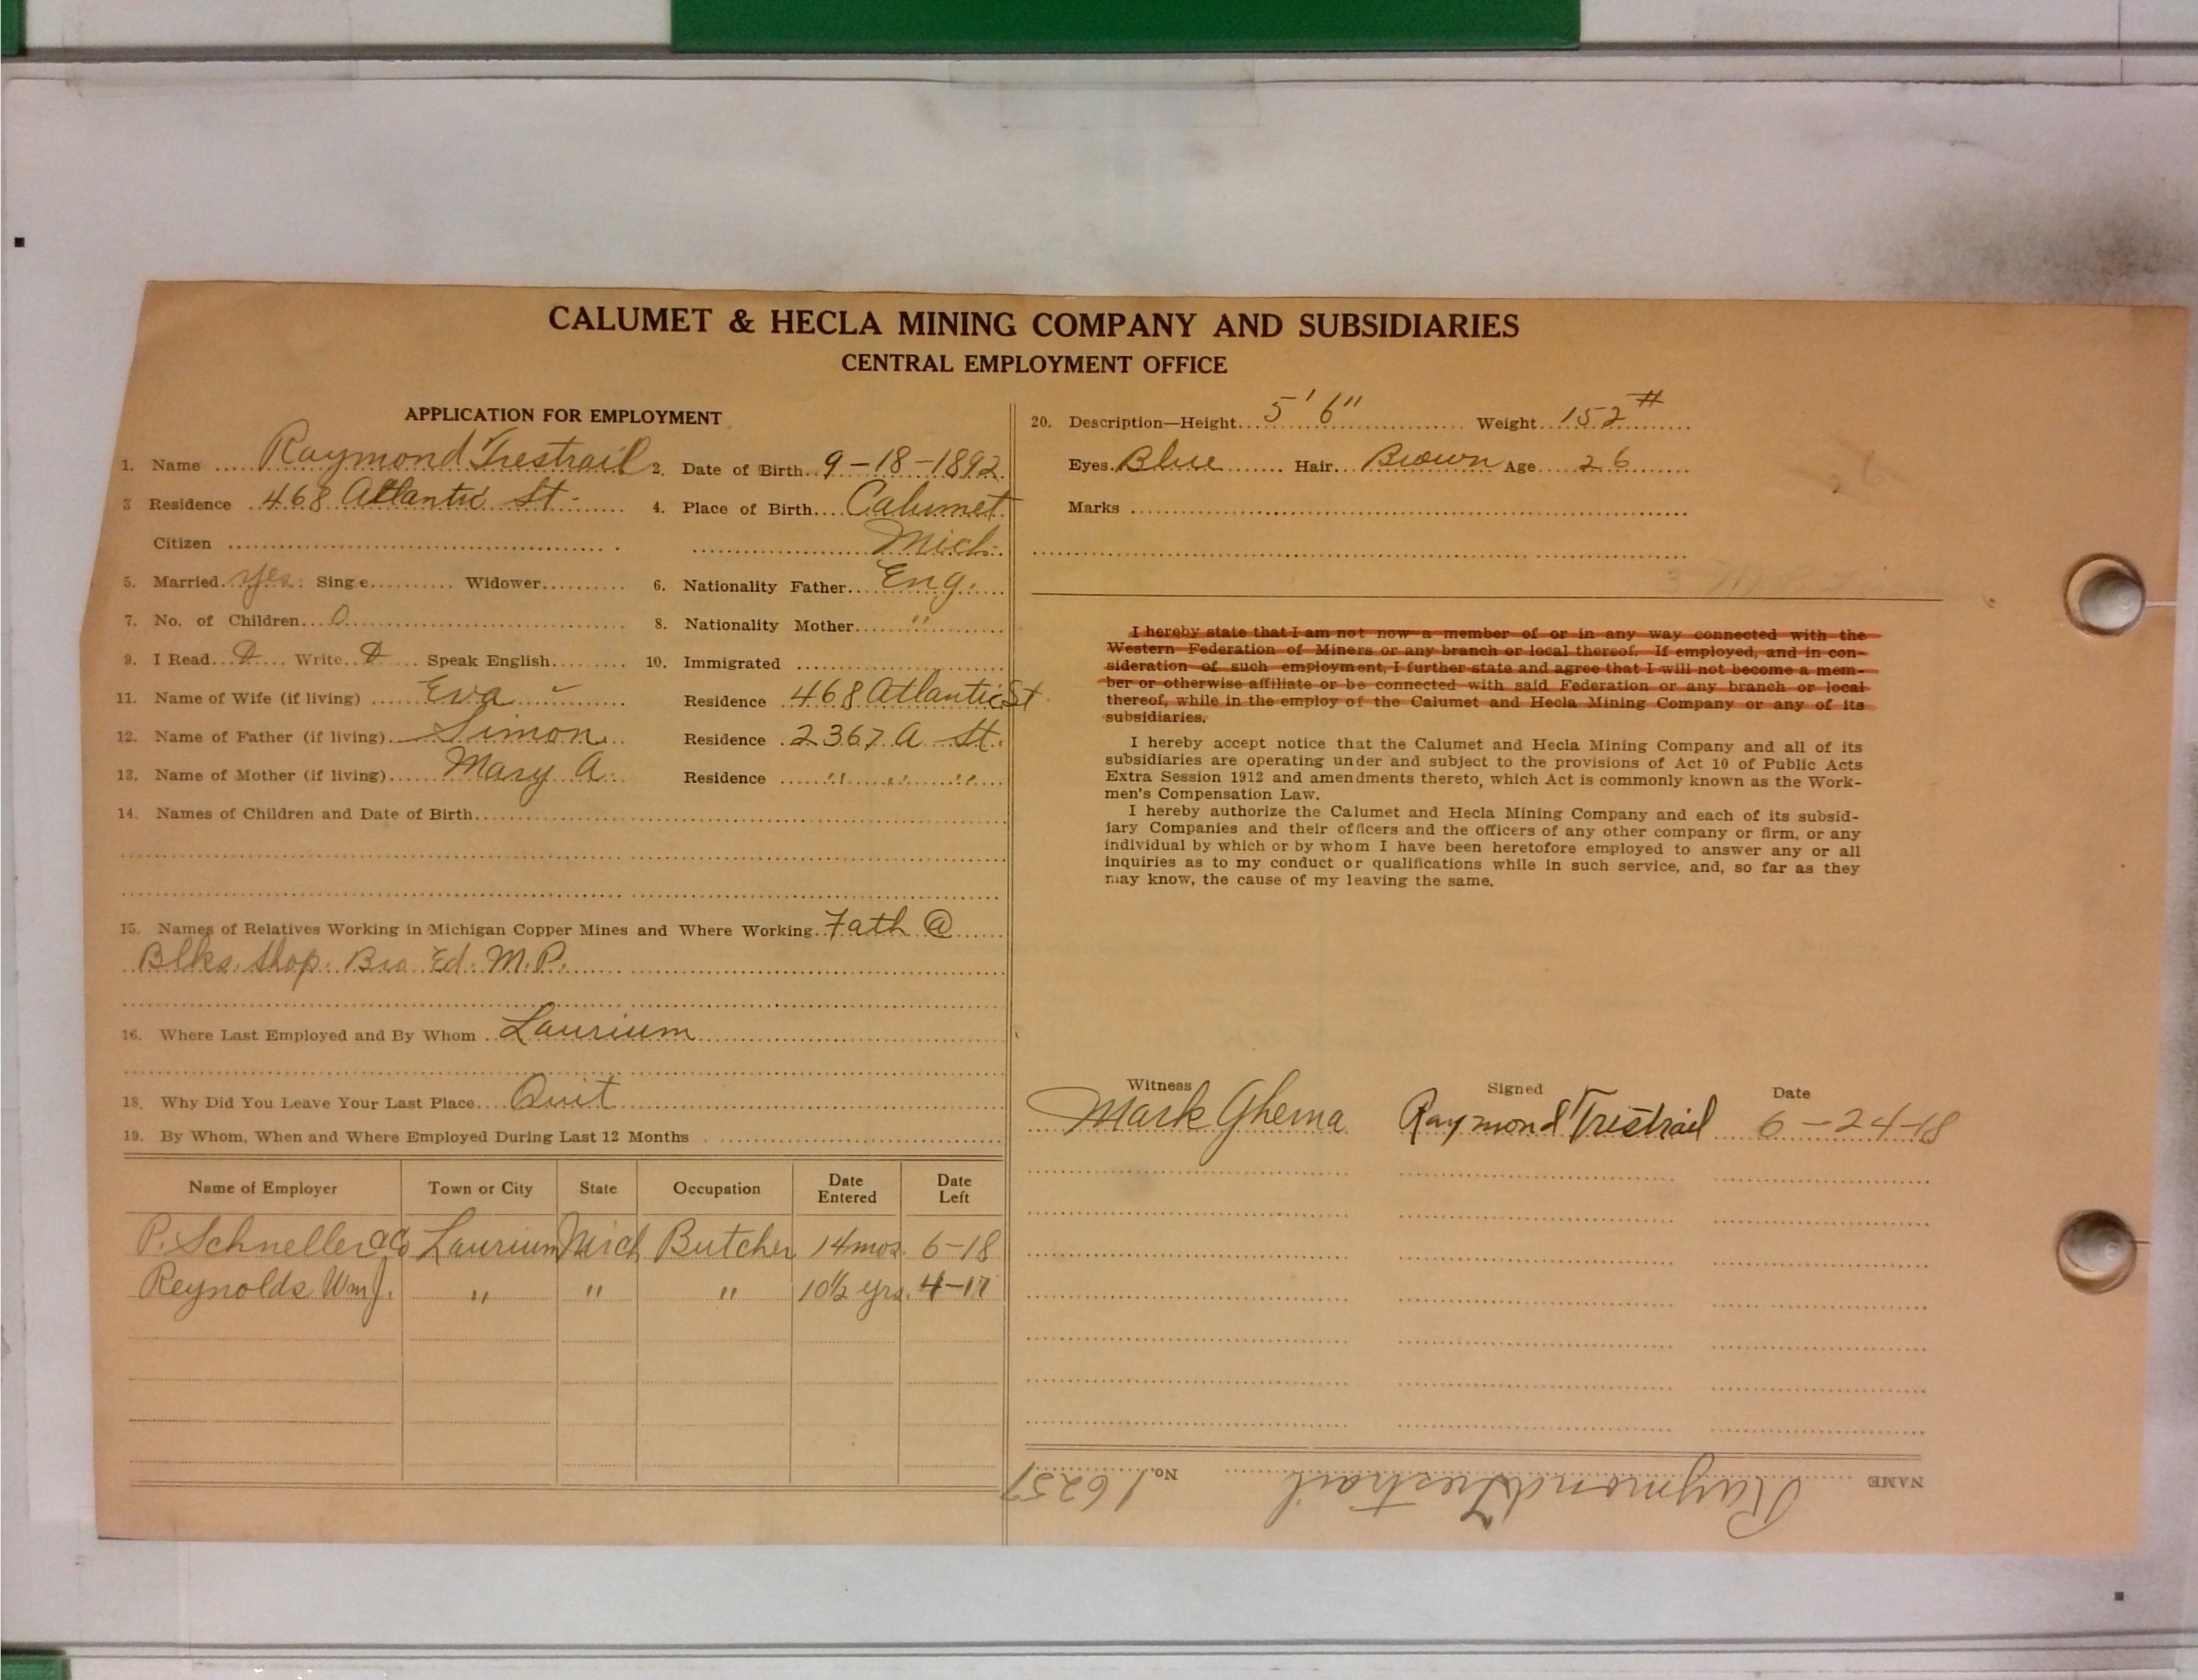 CALUMET & HECLA MINING COMPANY AND SUBSIDIARIES
CENTRAL EMPLOYMENT OFFICE
APPLICATION FOR EMPLOYMENT
1. Name Raymond Trestrail 2. Date of Birth 9-18-1892
3 Residence 468 Atlantic St. 4. Place of Birth Calumet
Citizen Mich.
5. Married yes. Single Widower 6. Nationality Father Eng.
7. No. of Children 0 8. Nationality Mother "
9. I Read Write Speak English 10. Immigrated
11. Name of Wife (if living) Eva Residence 468 Atlantic St
12. Name of Father (if living) Simon Residence 2367 A St.
13. Name of Mother (if living) Mary A. Residence " " "
14. Names of Children and Date of Birth
15. Names of Relatives Working in Michigan Copper Mines and Where Working Fath @
Blks. Shop. Bro Ed. M.P.
16. Where Last Employed and By Whom Laurium
18. Why Did You Leave Your Last Place Quit
19. By Whom, When and Where Employed During Last 12 Months
Name of Employer Town or City State Occupation Date Entered Date Left
P. Schneller & Co Laurium Mich Butcher 14 mos. 6-18
Reynolds Wm J. " " " 10½ yrs. 4-17
20. Description—Height 5' 6" Weight 152#
Eyes Blue Hair Brown Age 26
Marks
I hereby state that I am not now a member of or in any way connected with the
Western Federation of Miners or any branch or local thereof. If employed, and in con-
sideration of such employment, I further state and agree that I will not become a mem-
ber or otherwise affiliate or be connected with said Federation or any branch or local
thereof, while in the employ of the Calumet and Hecla Mining Company or any of its
subsidiaries.
I hereby accept notice that the Calumet and Hecla Mining Company and all of its
subsidiaries are operating under and subject to the provisions of Act 10 of Public Acts
Extra Session 1912 and amendments thereto, which Act is commonly known as the Work-
men's Compensation Law.
I hereby authorize the Calumet and Hecla Mining Company and each of its subsid-
iary Companies and their officers and the officers of any other company or firm, or any
individual by which or by whom I have been heretofore employed to answer any or all
inquiries as to my conduct or qualifications while in such service, and, so far as they
may know, the cause of my leaving the same.
Witness Signed Date
Mark Gherna Raymond Trestrail 6-24-18
NAME Raymond Trestrail No. 16257